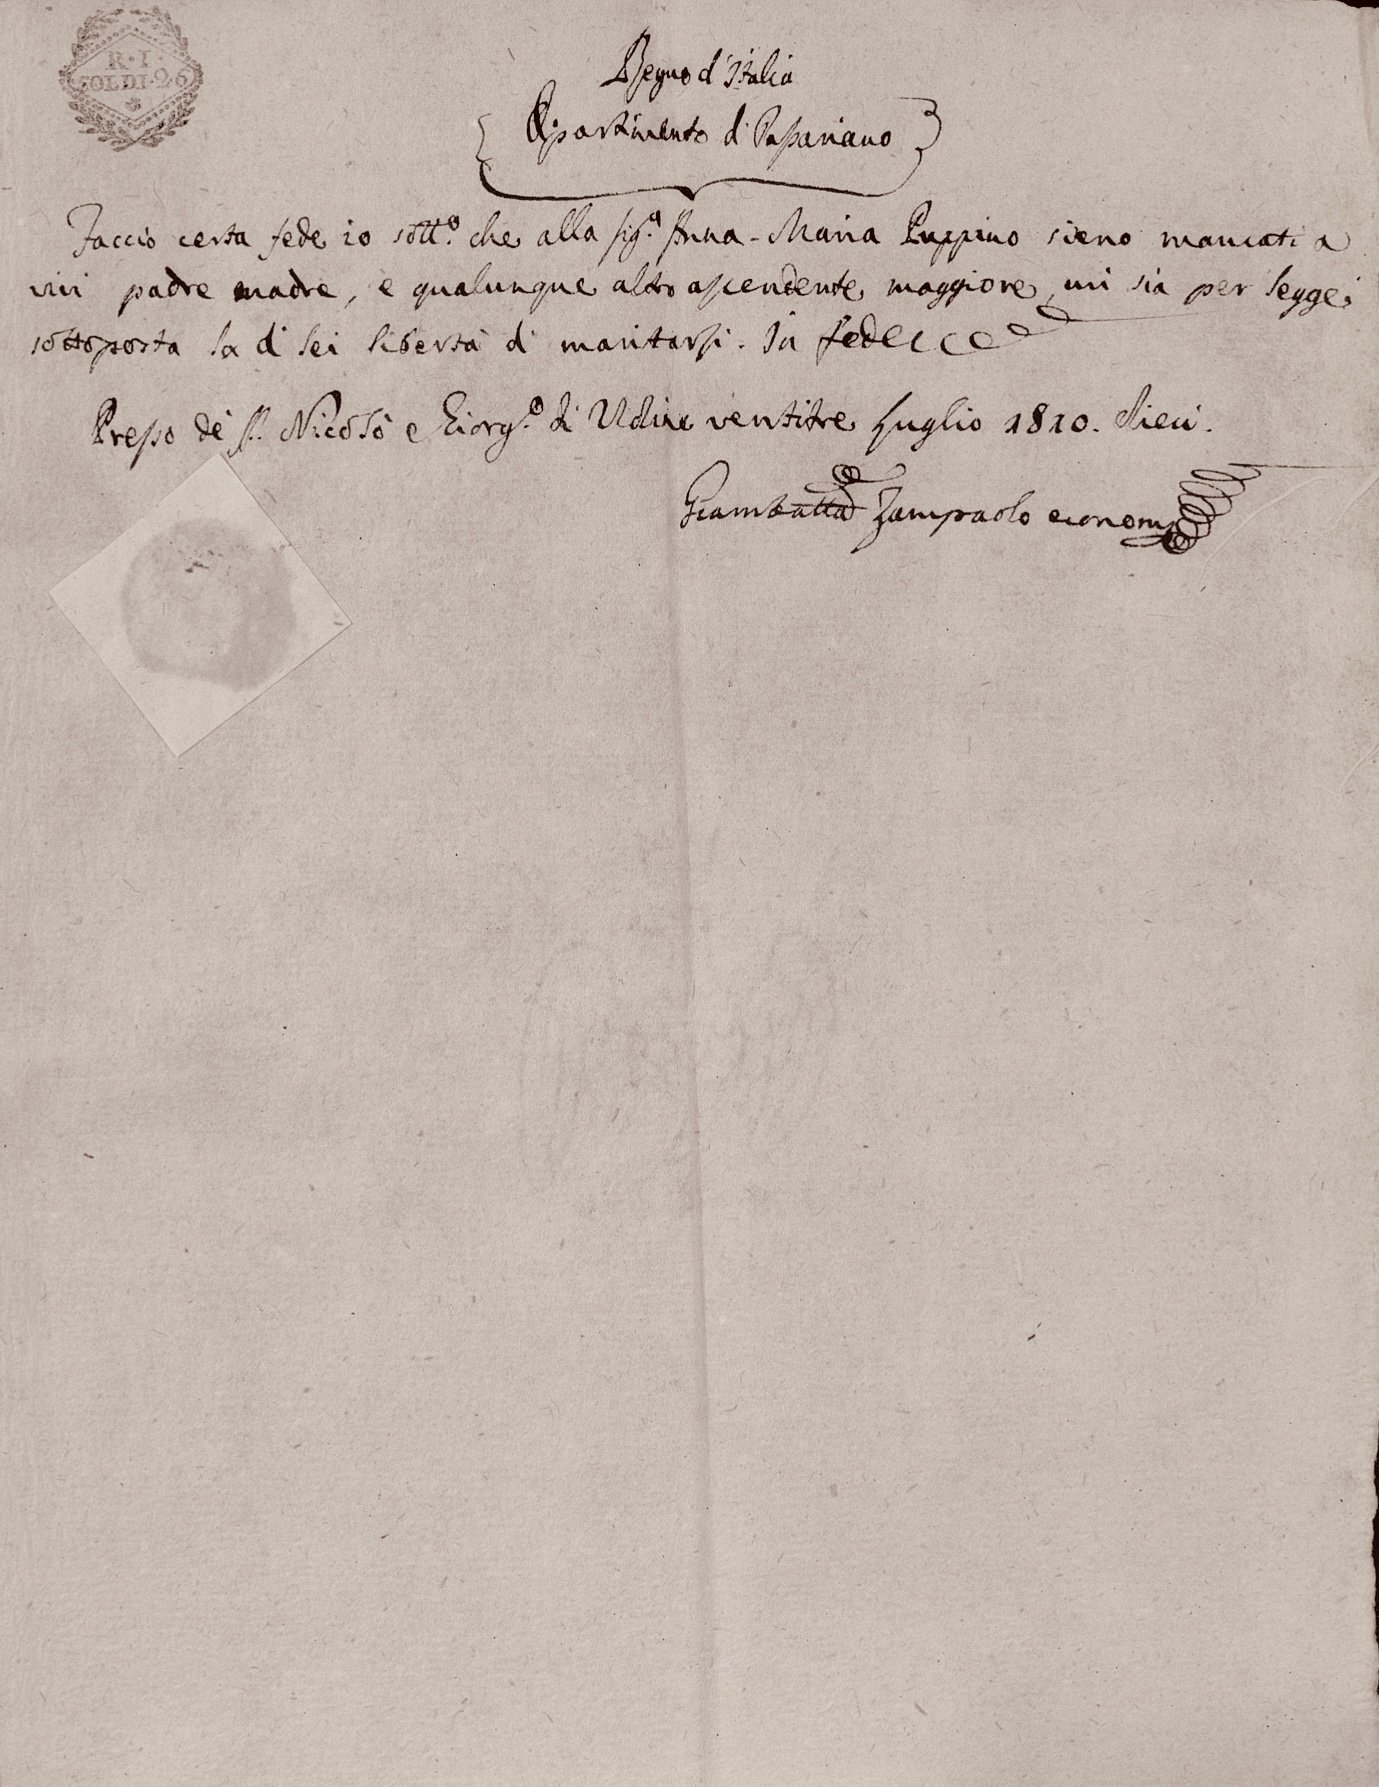 R · I
SOLDI · 26
Regno d'Italia
Dipartimento di Passariano
Faccio certa fede io sott.o che alla Sig.a Anna-Maria Puppino sieno mancati a
vivi padre madre, e qualunque altro ascendente maggiore, cui sia per legge
sottoposta la di lei libertà di maritarsi. In fede
Presso de' SS. Nicolò e Giorg.o di Udine ventitre Luglio 1810. dieci.
Giambatta Zampaolo economo